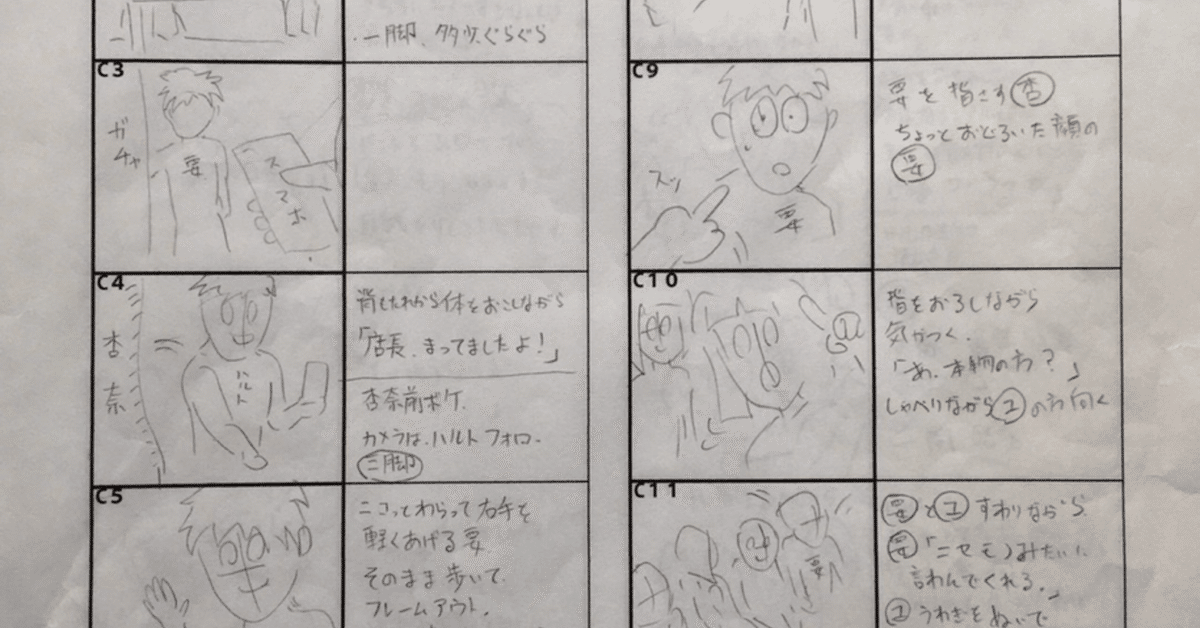 一脚、タタツ、ぐらぐら
C3
ガチャ
要
スマホ
C4
杏奈
ハルト
背もたれから体をおこしながら
「店長、まってましたよ!」
杏奈前ボケ
カメラは、ハルトフォロー
三脚
C5
ニコっとわらって右手を
軽くあげる要
そのまま歩いて
フレームアウト。
C9
スッ
要
要を指さす杏
ちょっとおどろいた顔の
要
C10
指をおろしながら
気がつく。
「あ、本物の方?」
しゃべりながらユの方向く
C11
要
要とユすわりながら
要「ニセモノみたいに
言わんでくれる。」
ユうわぎをぬいで